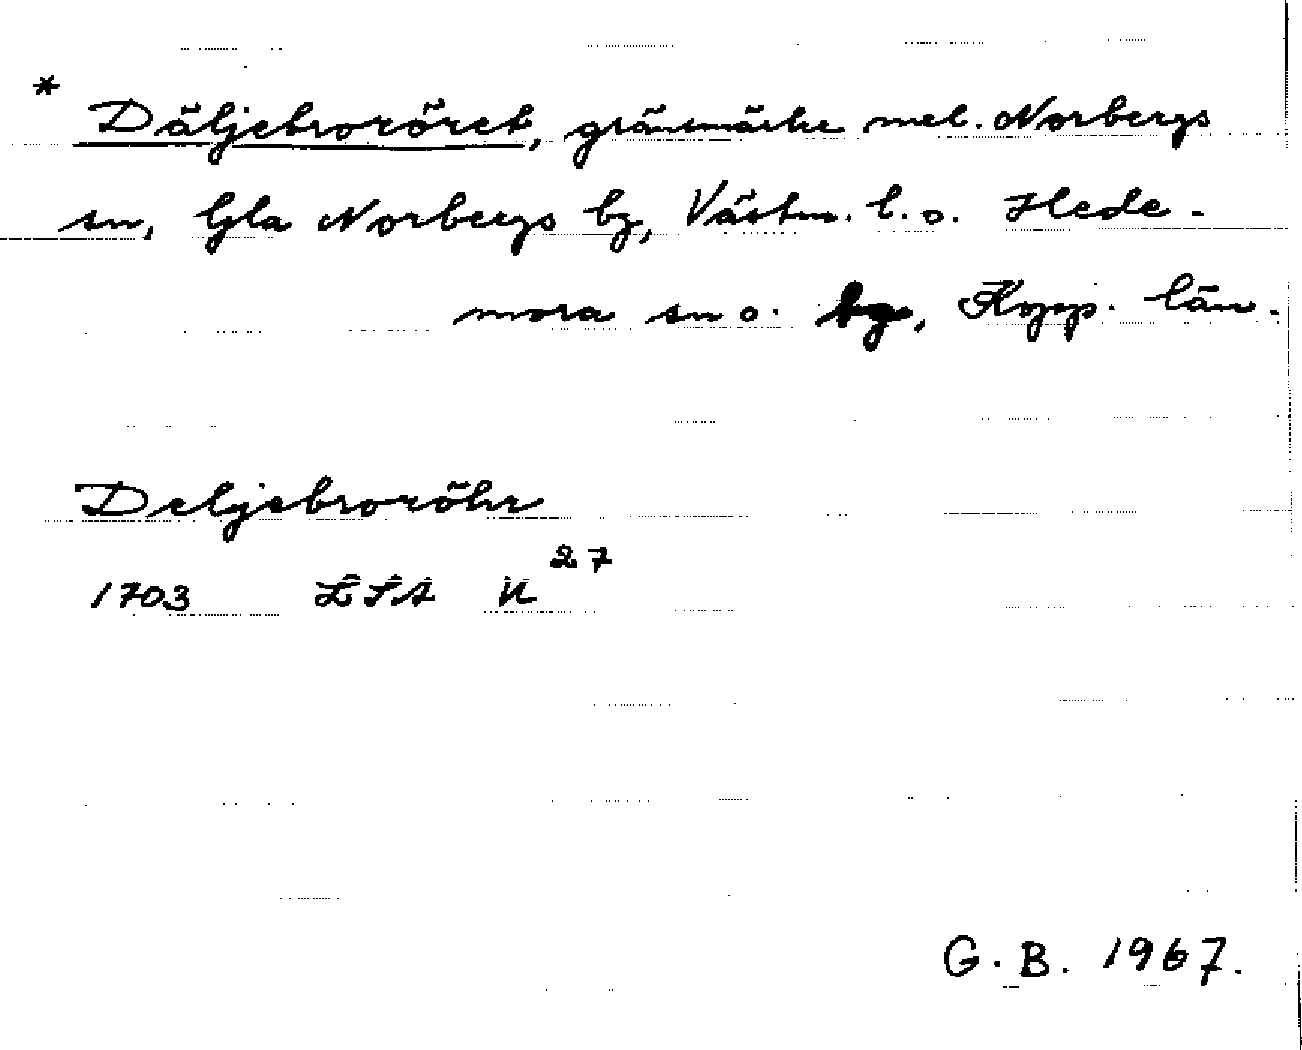 * Däljebroröret, gränsmärke mel. Norbergs
sn, Gla Norbergs bg, Västm. l. o. Hede-
mora sn o. bg, Kopp. län.
Deljebroröhr
1703 LSA U 27
G. B. 1967.